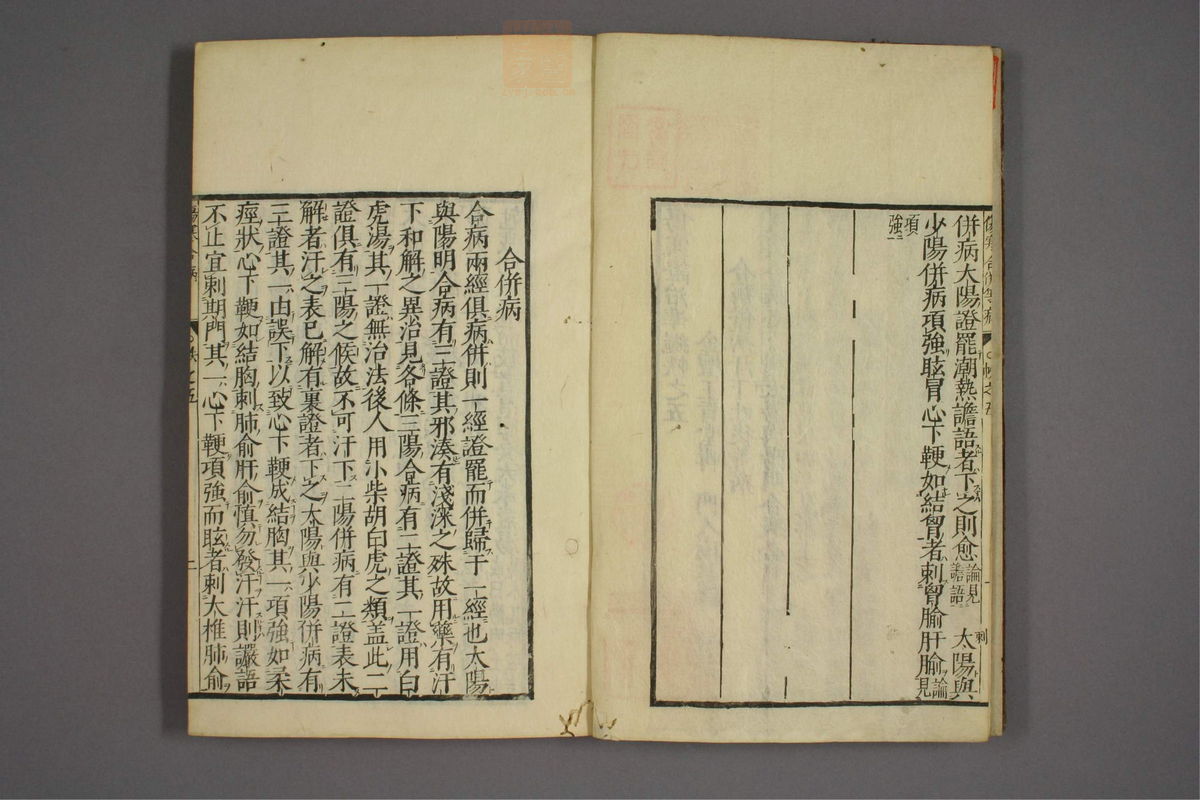 併病太陽證罷潮熱譫語者下之則愈論見譫語 太陽與
少陽併病項強眩冒心下鞕如結胷者刺胷腧肝腧論見
項強
合併病
合病兩經俱病併則一經證罷而併歸于一經也太陽
與陽明合病有三證其邪湊有淺深之殊故用藥有汗
下和解之異治見各條三陽合病有二證其一證用白
虎湯其一證無治法後人用小柴胡白虎之類盖此二
證俱有三陽之候故不可汗下二陽併病有二證表未
解者汗之表已解有裏證者下之太陽與少陽併病有
三證其一由誤下以致心下鞕成結胸其一項強如柔
痙狀心下鞕如結胸刺肺俞肝俞慎勿發汗汗則讝語
不止宜刺期門其一心下鞕項強而眩者刺大椎肺俞